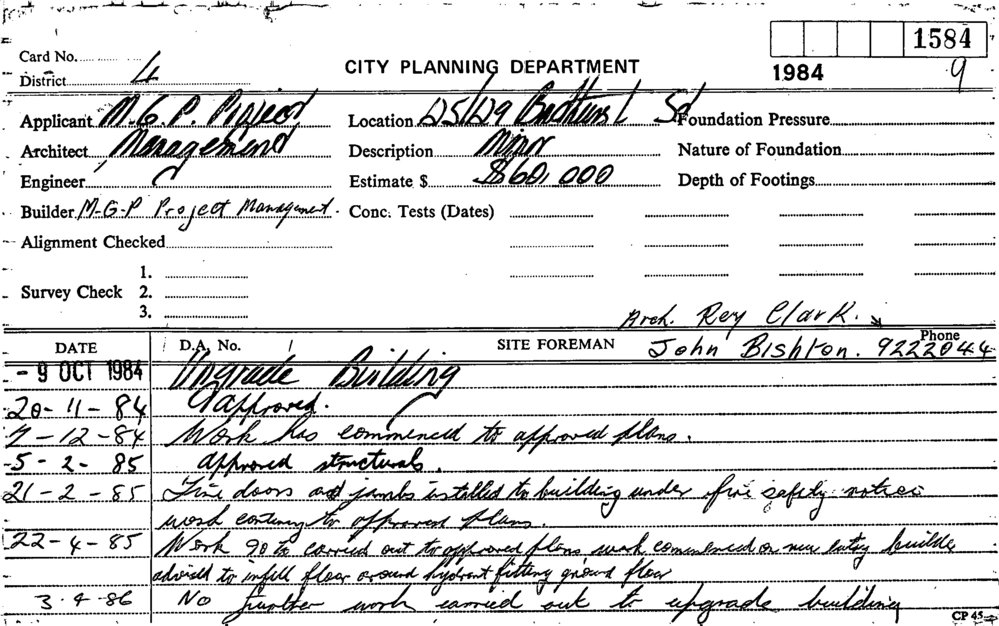 Card No.
1584
District 4
CITY PLANNING DEPARTMENT
1984 9
Applicant M.G.P. Project
Location 25/29 Bathurst St
Foundation Pressure
Architect Management
Description Minor
Nature of Foundation
Engineer
Estimate $ $60,000
Depth of Footings
Builder M-G-P Project Management.
Conc. Tests (Dates)
Alignment Checked
1.
Survey Check 2.
3.
Arch. Rey Clark.
DATE D.A. No. SITE FOREMAN Phone
John Bishton. 9222044
- 9 OCT 1984 Upgrade Building
20-11-84 Approved.
7-12-84 Work has commenced to approved plans.
5-2-85 approved structurals.
21-2-85 Fire doors and jambs installed to building under fire safety notice
work to approved plans.
22-4-85 Work 90% carried out to approved plans work commenced on new entry builder
advised to infill floor around hydrant fitting ground floor
3.4-86 No further work carried out to upgrade building
CP 45